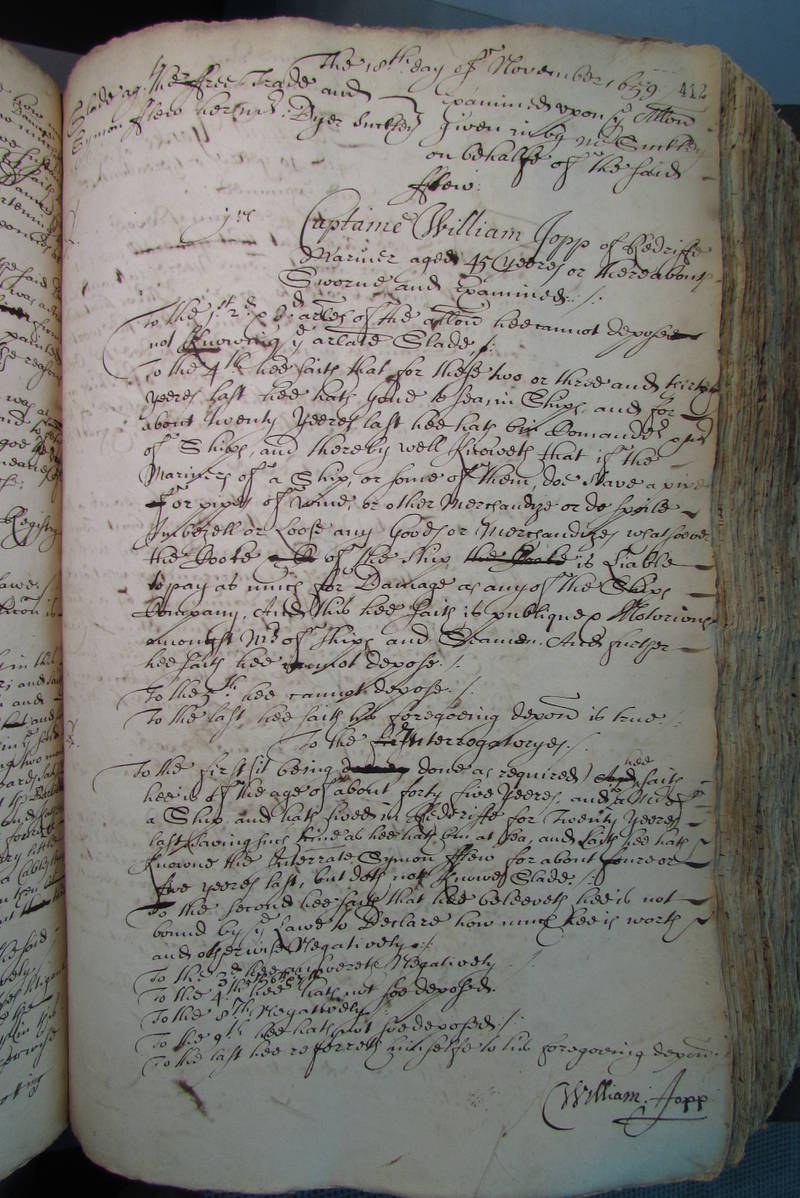 The 18th day of November 1659. 412
Slade agt the ffree Trade and
Symon fflew her Mr. Dyer Suckley
Examined upon ye Alltion
Given in by Mr Suckley
on behalfe of the said
fflew:
Captaine William Jopp of Redriffe
Mariner aged 45 yeeres or thereabouts
Sworne and Examined. /.
To the jst 2d & 3d arles of the alltion hee cannot depose
not knowing ye arlate Slade, /:
To the 4th hee saith that for these two or three and thirty
yeeres last hee hath gone to sea, in Ships, and for
about twenty yeeres last hee hath bin Comander
of Ships, and thereby well knoweth that if the
Mariners of a Ship, or some of them, doe
or pipes of Wine, or other Merchandize or do spoile
Imbezell or Loose any Goods or Merchandizes whatsoever
the Boate of the Ship the Boate is Liable
to pay as much for Damage as any of the Ships
Company, And this hee saith is publique & Notorious
amongst Mrs of Ships and Seamen. And further
hee saith hee cannot depose. /.
To the 5th hee cannot depose. /.
To the last hee saith his foregoeing depon is true.
To the Interrogatoryes. /.
To the first (it being done as required) hee saith
hee is of the age of about forty five yeeres, and
a Ship and hath lived in Redriffe for Twenty yeeres
last saving such time as hee hath bin at sea, and saith hee hath
knowne the Interrate Symon fflew for about foure or
five yeeres last, but doth not knowe Slade. /.
To the second hee saith that hee beleeveth hee is not
bound by ye Lawe to Declare how much hee is worth
and otherwise Negatively. /.
To the 3d hee answereth Negatively
To the 4th hee hath not soe deposed.
To the 8th Negatively
To the 9th hee hath not soe deposed. /.
To the last hee referreth himselfe to his foregoeing depon.
William: Jopp